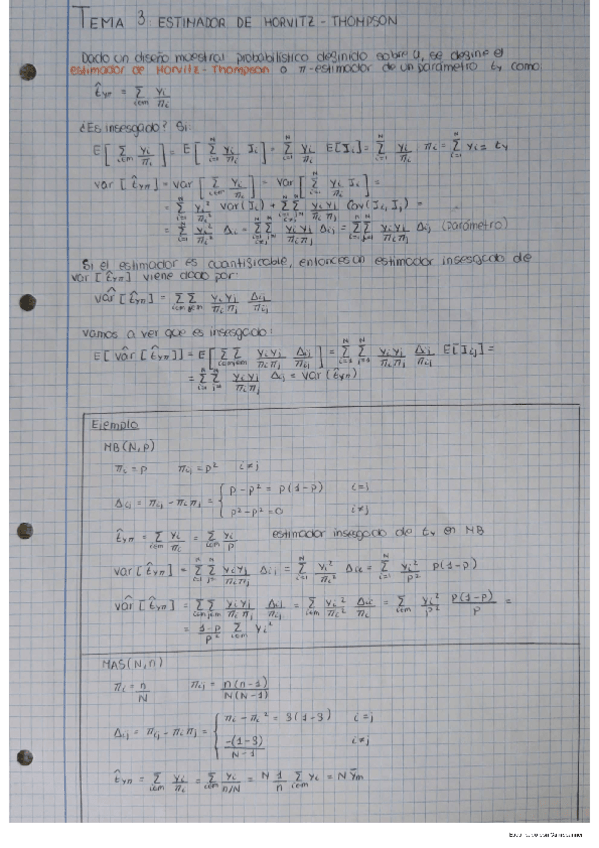 TEMA 3: ESTIMADOR DE HORVITZ-THOMPSON
Dado un diseño muestral probabilístico definido sobre U, se define el
estimador de Horvitz-Thompson o π-estimador de un parámetro ty como
t̂yπ = Σ_{i∈m} yi/πi
¿Es insesgado? Si:
E[Σ_{i∈m} yi/πi] = E[Σ_{i=1}^N yi/πi Ii] = Σ_{i=1}^N yi/πi E[Ii] = Σ_{i=1}^N yi/πi πi = Σ_{i=1}^N yi = ty
var[t̂yπ] = var[Σ_{i∈m} yi/πi] = var[Σ_{i=1}^N yi/πi Ii] =
= Σ_{i=1}^N yi²/πi² var(Ii) + ΣΣ_{i≠j} yi yj/πiπj Cov(Ii, Ij) =
= Σ_{i=1}^N yi²/πi² Δi ΣΣ_{i≠j} yi yj/πiπj Δij = Σ_{i=1}^N Σ_{j=1}^N yi yj/πiπj Δij (parámetro)
Si el estimador es cuantificable, entonces un estimador insesgado de
var[t̂yπ] viene dado por:
var̂[t̂yπ] = Σ_{i∈m} Σ_{j∈m} yi yj/πiπj Δij/πij
Vamos a ver que es insesgado:
E[var̂[t̂yπ]] = E[ΣΣ_{i∈m j∈m} yi yj/πiπj Δij/πij] = Σ_{i=1}^N Σ_{j=1}^N yi yj/πiπj Δij/πij E[Iij] =
= Σ_{i=1}^N Σ_{j=1}^N yi yj/πiπj Δij = var(t̂yπ)
Ejemplo
MB(N,p)
πi = p πij = p² i≠j
Δij = πij - πiπj = { p - p² = p(1-p) i=j
p² - p² = 0 i≠j
t̂yπ = Σ_{i∈m} yi/πi = Σ_{i∈m} yi/p estimador insesgado de ty en MB
var[t̂yπ] = Σ_{i=1}^N Σ_{j=1}^N yi yj/πiπj Δij = Σ_{i=1}^N yi²/πi² Δii = Σ_{i=1}^N yi²/p² p(1-p)
var̂[t̂yπ] = Σ_{i∈m} Σ_{j∈m} yi yj/πiπj Δij/πij = Σ_{i∈m} yi²/πi² Δii/πii = Σ_{i∈m} yi²/p² p(1-p)/p =
= 1-p/p² Σ_{i∈m} yi²
MAS(N,n)
πi = n/N πij = n(n-1)/N(N-1)
Δij = πij - πiπj = { πi - πi² = f(1-f) i=j
-f(1-f)/N-1 i≠j
t̂yπ = Σ_{i∈m} yi/πi = Σ_{i∈m} yi/n/N = N 1/n Σ_{i∈m} yi = N ȳm